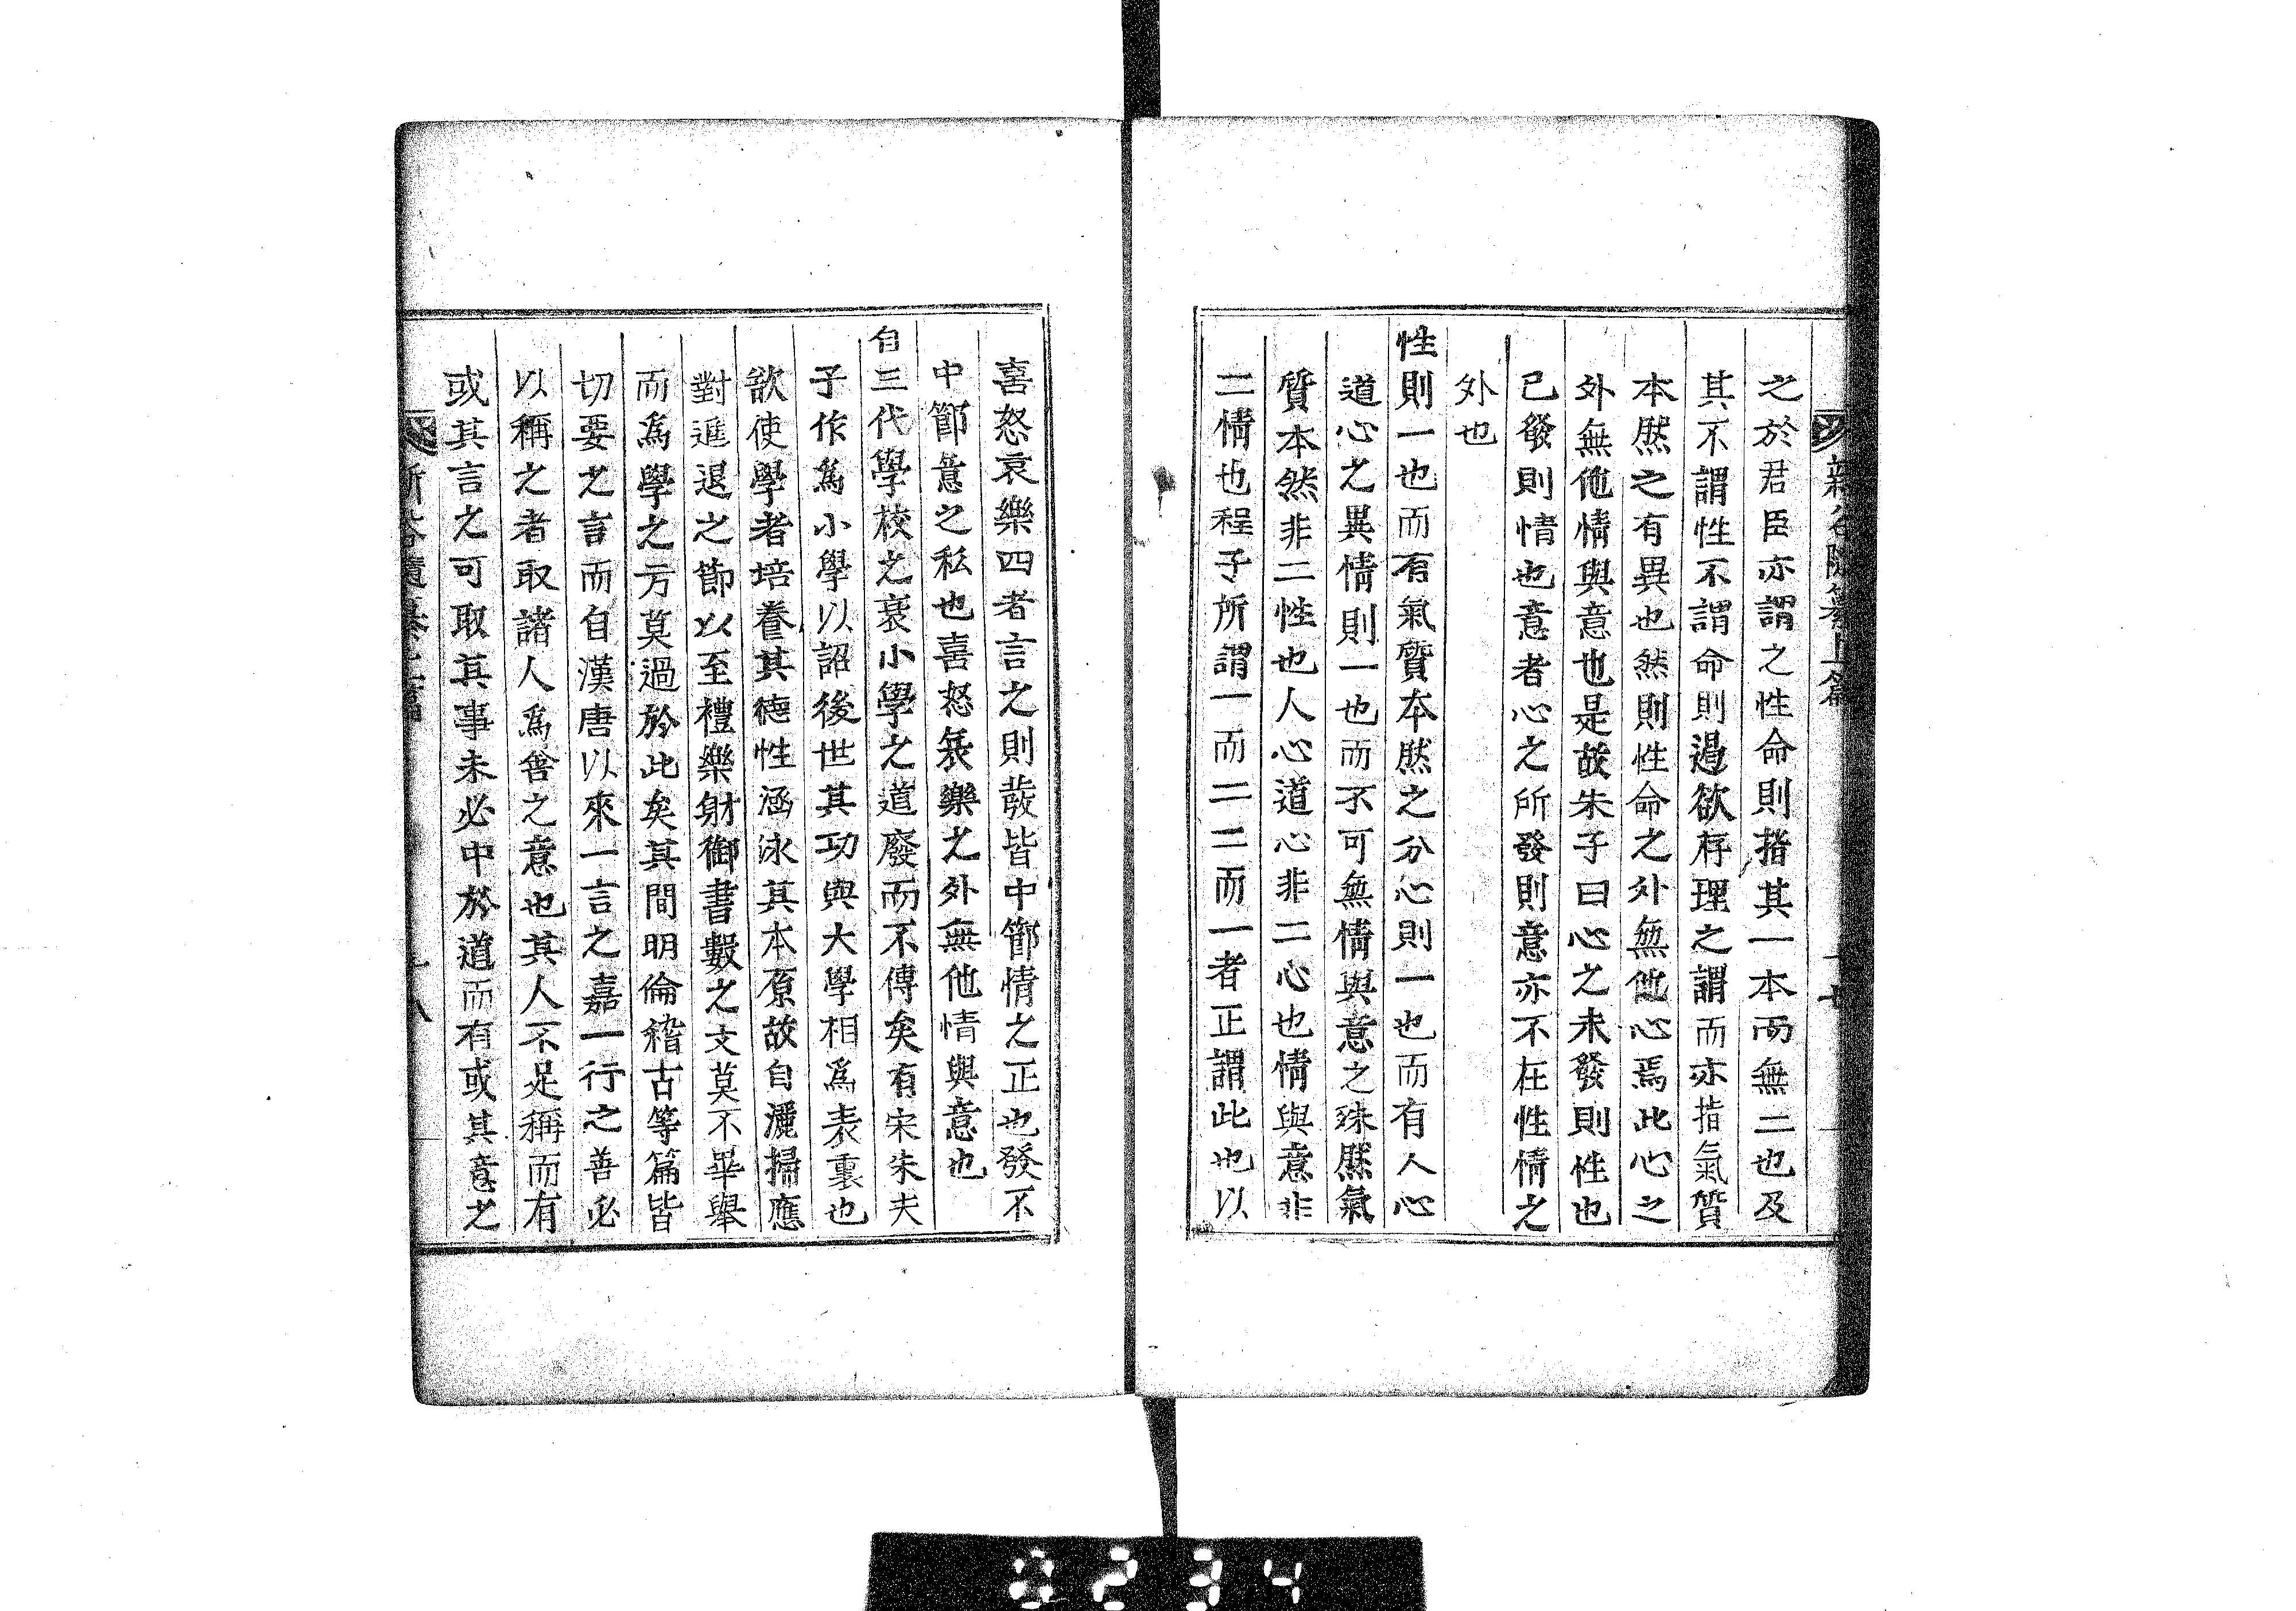 之於君臣亦謂之性命則指其一本而無二也及
其不謂性不謂命則遏欲存理之謂而亦指氣質
本然之有異也然則性命之外無他心焉此心之
外無他情與意也是故朱子曰心之未發則性也
已發則情也意者心之所發則意亦不在性情之
外也
性則一也而有氣質本然之分心則一也而有人心
道心之異情則一也而不可無情與意之殊然氣
質本然非二性也人心道心非二心也情與意非
二情也程子所謂一而二二而一者正謂此也以
喜怒哀樂四者言之則發皆中節情之正也發不
中節意之私也喜怒哀樂之外無他情與意也
自三代學校之衰小學之道廢而不傳矣有宋朱夫
子作爲小學以詔後世其功與大學相爲表裏也
欲使學者培養其德性涵泳其本原故自灑掃應
對進退之節以至禮樂射御書數之文莫不畢舉
而爲學之方莫過於此矣其間明倫稽古等篇皆
切要之言而自漢唐以來一言之嘉一行之善必
以稱之者取諸人爲善之意也其人不足稱而有
或其言之可取其事未必中於道而有或其意之